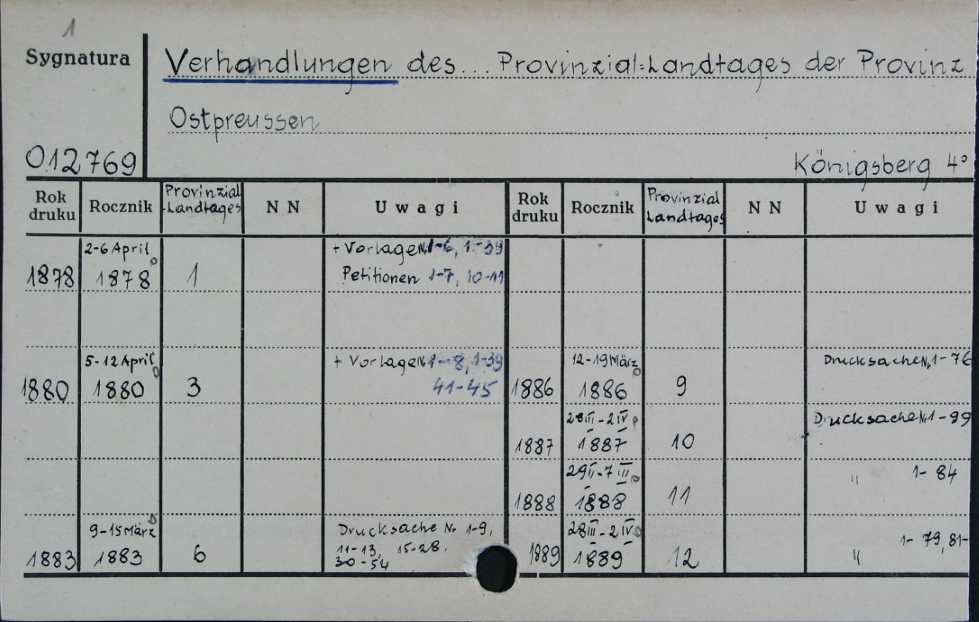 1
Sygnatura
Verhandlungen des... Provinzial=Landtages der Provinz
Ostpreussen
012769
Königsberg 4°
Rok druku Rocznik Provinzial-Landtages NN Uwagi Rok druku Rocznik Provinzial Landtages NN Uwagi
2-6 April + Vorlage Nr. 1-6, 1-39
1878 1878 1 Petitionen 1-7, 10-11
5-12 April + Vorlage Nr. 1-8, 1-39 12-19 März Drucksache Nr. 1-76
1880 1880 3 41-45 1886 1886 9
28III-2IV Drucksache Nr. 1-99
1887 1887 10
29II-7III " 1-84
1888 1888 11
9-15 März Drucksache Nr. 1-9, 28III-2IV 1-79, 81-
1883 1883 6 11-13, 15-28. 1889 1889 12 "
30-54